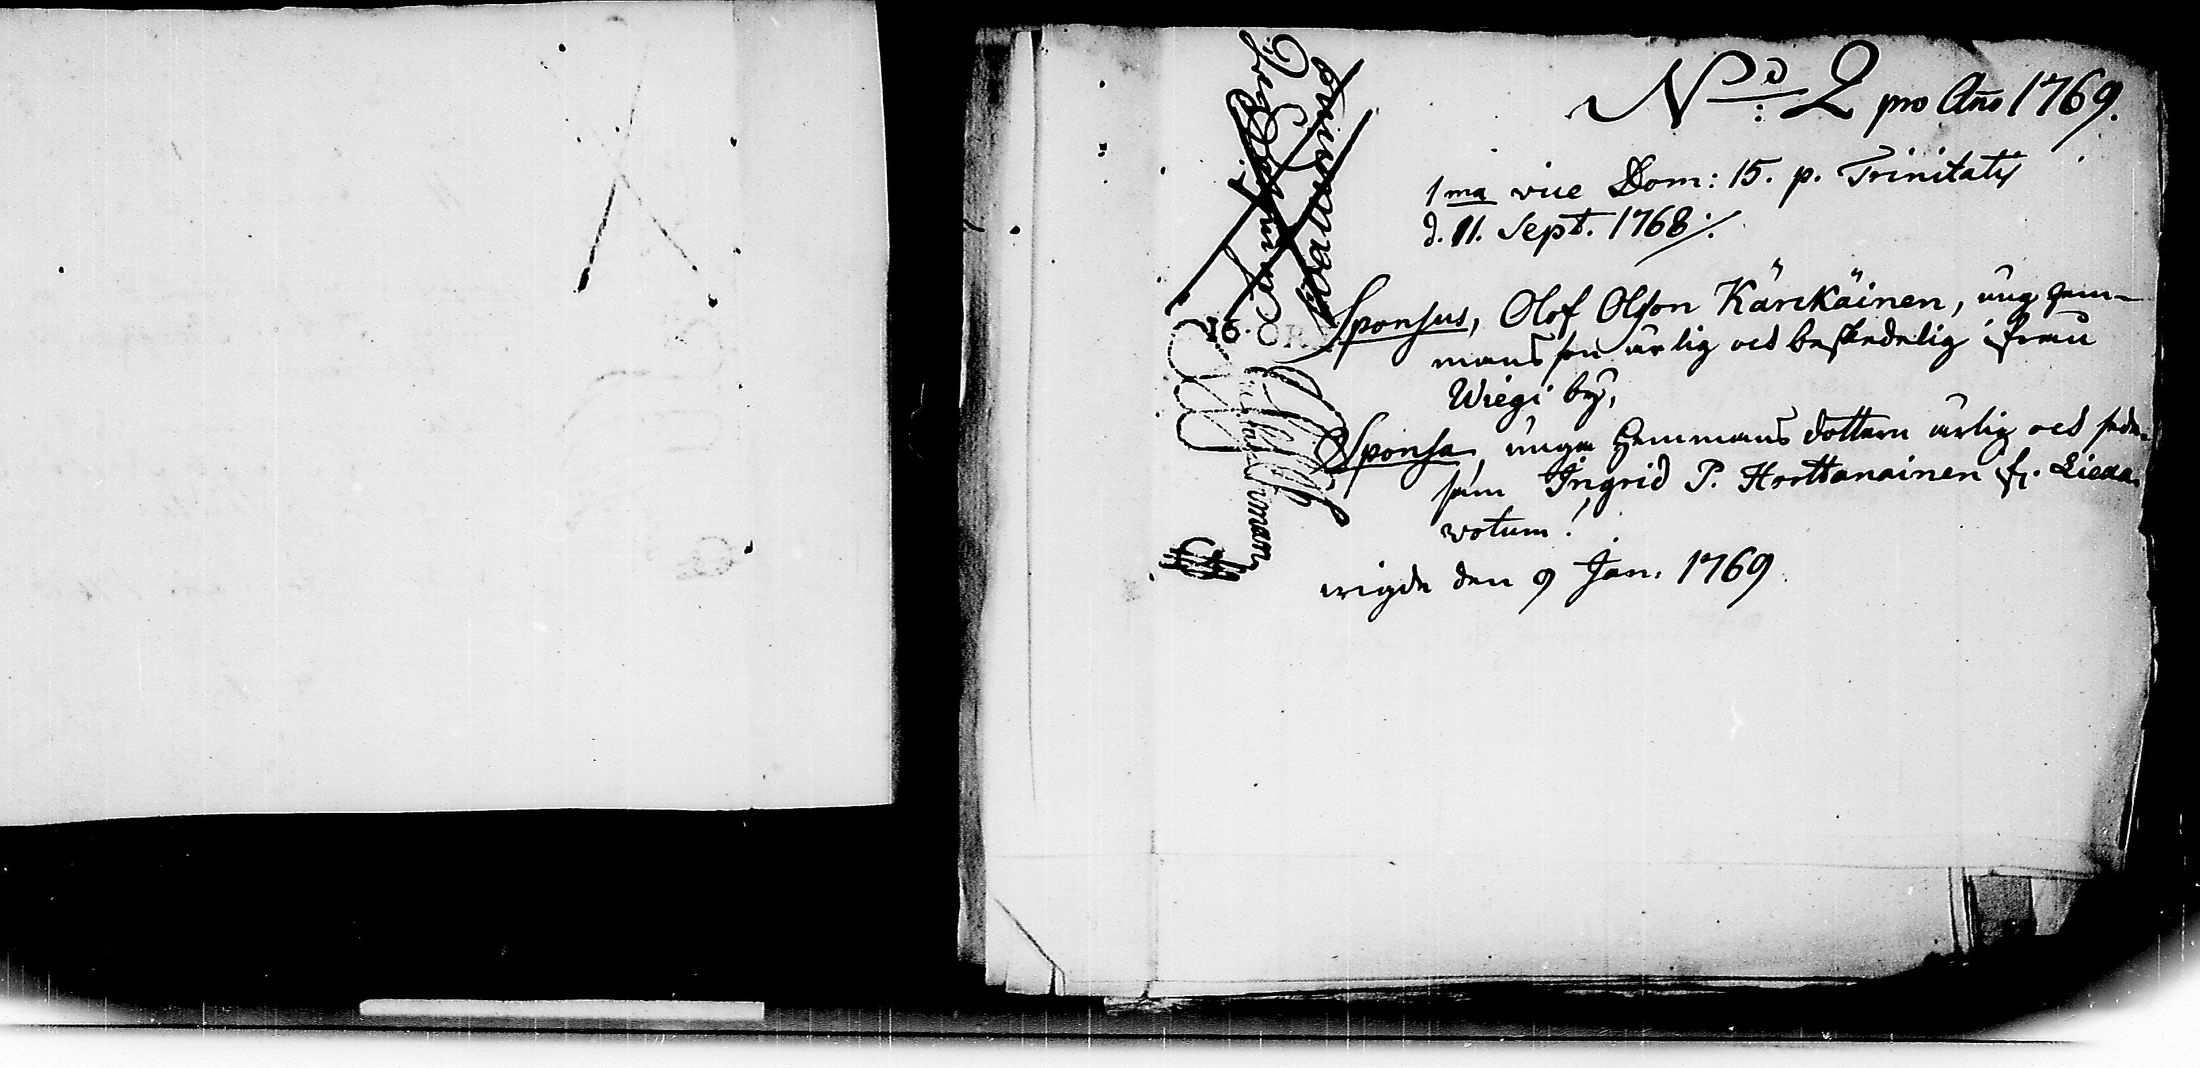 No 2 pro Año 1769.
1ma vice Dom: 15. p. Trinitatis
d. 11. Sept. 1768 ./.
Sponsus, Olof Olsson Kärckäinen, ung hem-
mans son ärlig och beskedelig ifrån
Wiegi by,
Sponsa, unga hemmans dottern ärlig och sede-
sam Ingrid P. Horttanainen fr.
votum!
wigde den 9 Jan. 1769